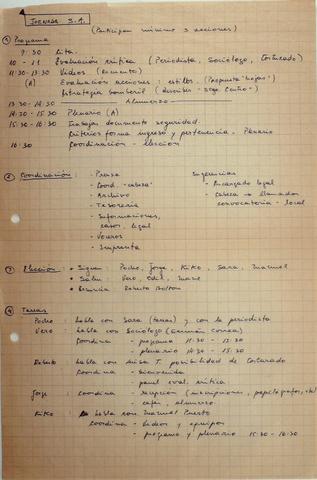 JORNADA S.A.
(Participan mínimo 3 acciones)
① Programa
9:30 Cita.
10 - 11 Evaluación crítica (Periodista, Sociólogo, Costurado)
11:30 - 13:30 Videos (Recuento)
(A) Evaluación acciones: estilos. (Propuesta "hojas")
Estrategia bomberil
13:30 - 14:30 Almuerzo
14:30 - 15:30 Plenario (A)
15:30 - 16:30 Trabajo documento seguridad.
Criterios forma ingreso y pertenencia. Plenario
16:30 Coordinación - elección
② Coordinación: - Prensa
- Coord. "cabeza"
- Archivo
- Tesorería
- Informaciones,
casos, legal
- Voceros
- Imprenta
Sugerencias
- Encargado legal
- Cabeza → llamados
convocatoria - local
③ Elección: • Siguen: Pecho, Jorge, Kiko, Sara, Manuel
• Salen: Vero, Edil,
• Renuncia Roberto Bolton
④ Tareas
Pecho: habla con Sara (tareas) y con la periodista
Vero: habla con Sociólogo (Germán Correa)
Coordina - programa 11:30 - 13:30
- plenario 14:30 - 15:30
Roberto: habla con Luisa T. posibilidad de Costurado
Coordina - bienvenida
- panel eval. crítica
Jorge: coordina - recepción (inscripciones, papelógrafos, etc)
- café, almuerzo
Kiko: habla con Manuel Puerto
coordina - videos y equipos
- programa y plenario 15:30 - 16:30